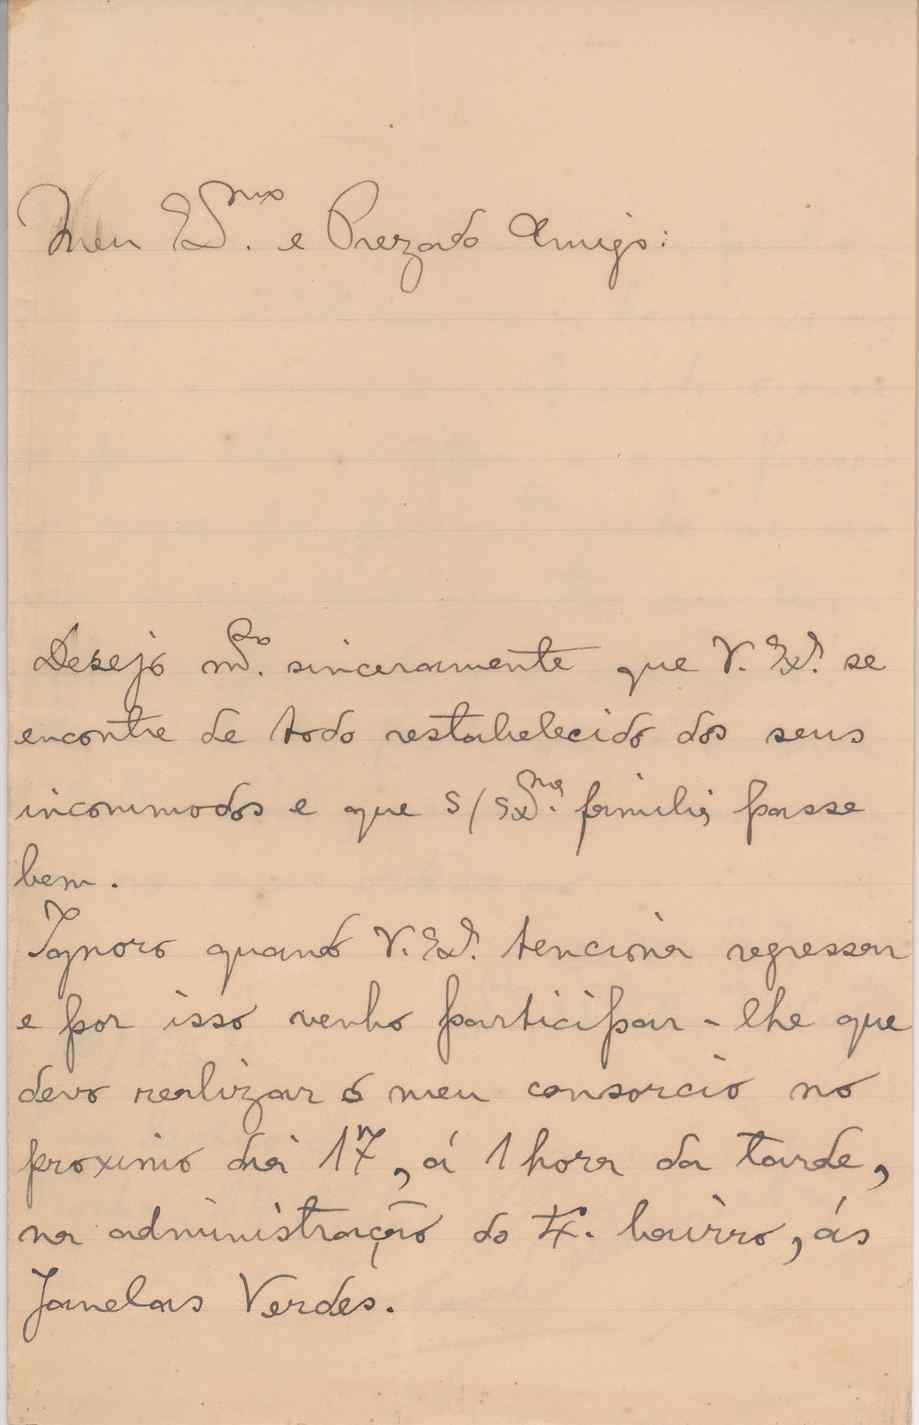 Meu Ex.mo e Prezado Amigo:
Desejo m.to sinceramente que V. Ex.ª se
encontre de todo restabelecido dos seus
incommodos e que s/ Ex.ma familia passe
bem.
Ignoro quando V. Ex.ª tenciona regressar
e por isso venho participar-lhe que
devo realizar o meu consorcio no
proximo dia 17, á 1 hora da tarde,
na administração do 4.º bairro, ás
Janelas Verdes.